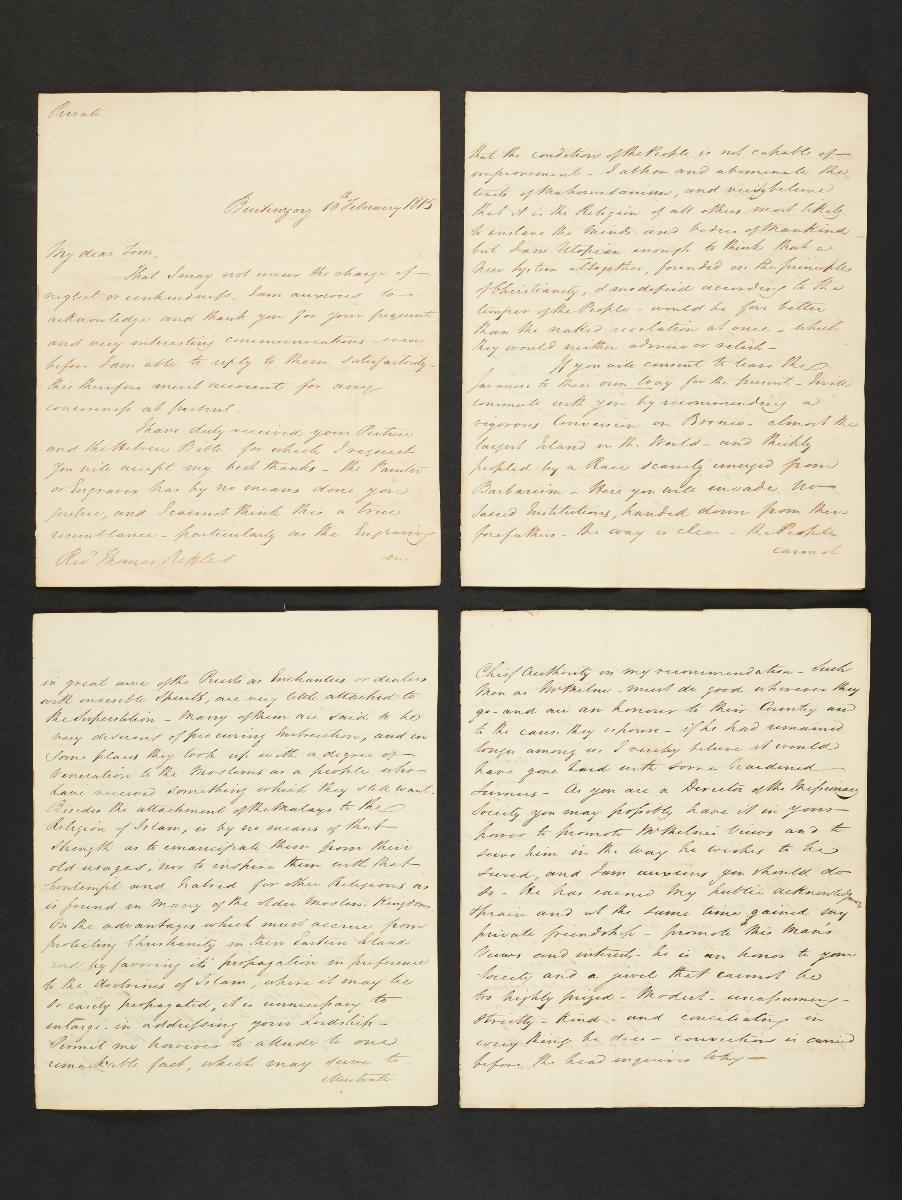 Private
Buitenzorg 10th February 1815
My dear Toon,
That I may not incur the charge of
neglect or unkindness, I am anxious to
acknowledge and thank you for your frequent
and very interesting communications - even
before I am able to reply to them satisfactorily -
this therefore must account for any
conciseness at present.
I have duly received your Picture
and the Hebrew Bible for which I request
you will accept my best thanks - the Painter
or Engraver has by no means done you
justice, and I cannot think this a true
resemblance - particularly as the Engraving
Revd Thomas Raffles
that the condition of the People is not capable of
improvement - I abhor and abominate the
tenets of Mahomedanism, and verily believe
that it is the Religion of all others most likely
to enslave the minds and bodies of Mankind -
but I am Utopian enough to think that a
new System altogether, founded on the principles
of Christianity, & modified according to the
temper of the People - would be far better
than the naked revelation at once - which
they would neither admire or relish -
If you will consent to leave the
Javanese to their own way for the present - I will
commute with you by recommending a
vigorous Conversion on Borneo - almost the
largest Island in the World - and thickly
peopled by a Race scarcely emerged from
Barbarism - Here you will invade no
Sacred Institutions, handed down from their
forefathers - the way is clear - the People
cannot
in great awe of the Priests as Enchanters or dealers
with invisible Spirits, are very little attached to
the Superstition - Many of them are said to be
very desirous of procuring Instruction, and in
some places they look up with a degree of
Veneration to the Moslems as a people who
have received something which they still want.
Besides the attachment of the Malays to the
Religion of Islam, is by no means of that
Strength as to emancipate them from their
old usages, nor to inspire them with that
contempt and hatred for other Religions as
is found in many of the older Moslem Kingdoms
On the advantages which must accrue from
protecting Christianity in these Eastern Islands
and by favoring its propagation in preference
to the doctrines of Islam, where it may be
so easily propagated, it is unnecessary to
enlarge in addressing your Lordship -
Permit me however to allude to one
remarkable fact, which may serve to
illustrate
Chief Authority on my recommendation - Such
Men as Mr Milne must do good wherever they
go - and are an honour to their Country and
to the cause they espouse - if he had remained
longer among us I verily believe it would
have gone hard with some hardened
Sinners - As you are a Director of the Missionary
Society you may possibly have it in your
power to promote Mr Milne's views and to
serve him in the way he wishes to be
served, and I am anxious you should do
so - He has earned my public acknowledgment
& praise and at the same time gained my
private friendship - promote this Man's
Views and interests - he is an honor to your
Society and a jewel that cannot be
too highly prized - Modest - unassuming -
Strictly - Kind - and conciliating in
every thing he does - conviction is carried
before the head enquires why -